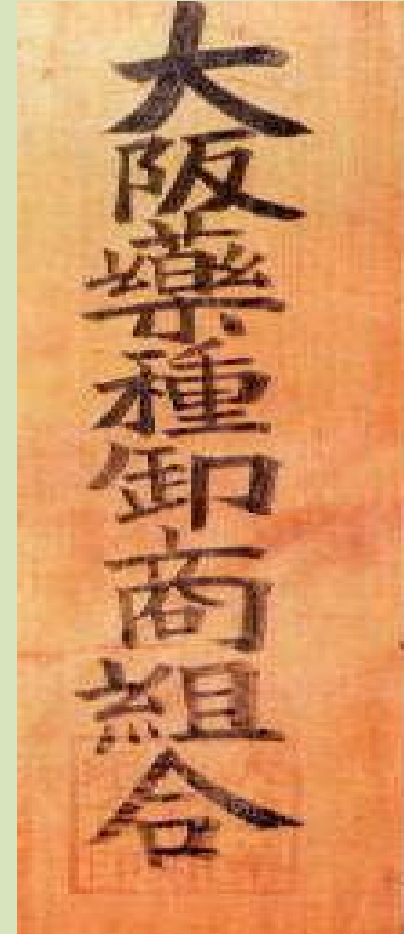 大阪藥種卸商組合